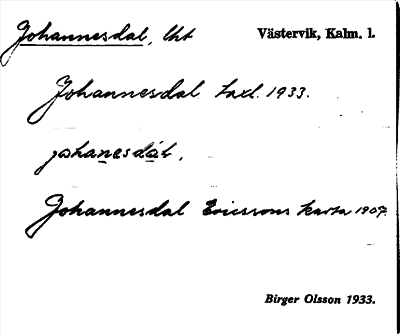 Johannesdal, lht Västervik, Kalm. l.
Johannesdal taxl. 1933.
johanesdáh,
Johannesdal Ericssons karta 1907.
Birger Olsson 1933.